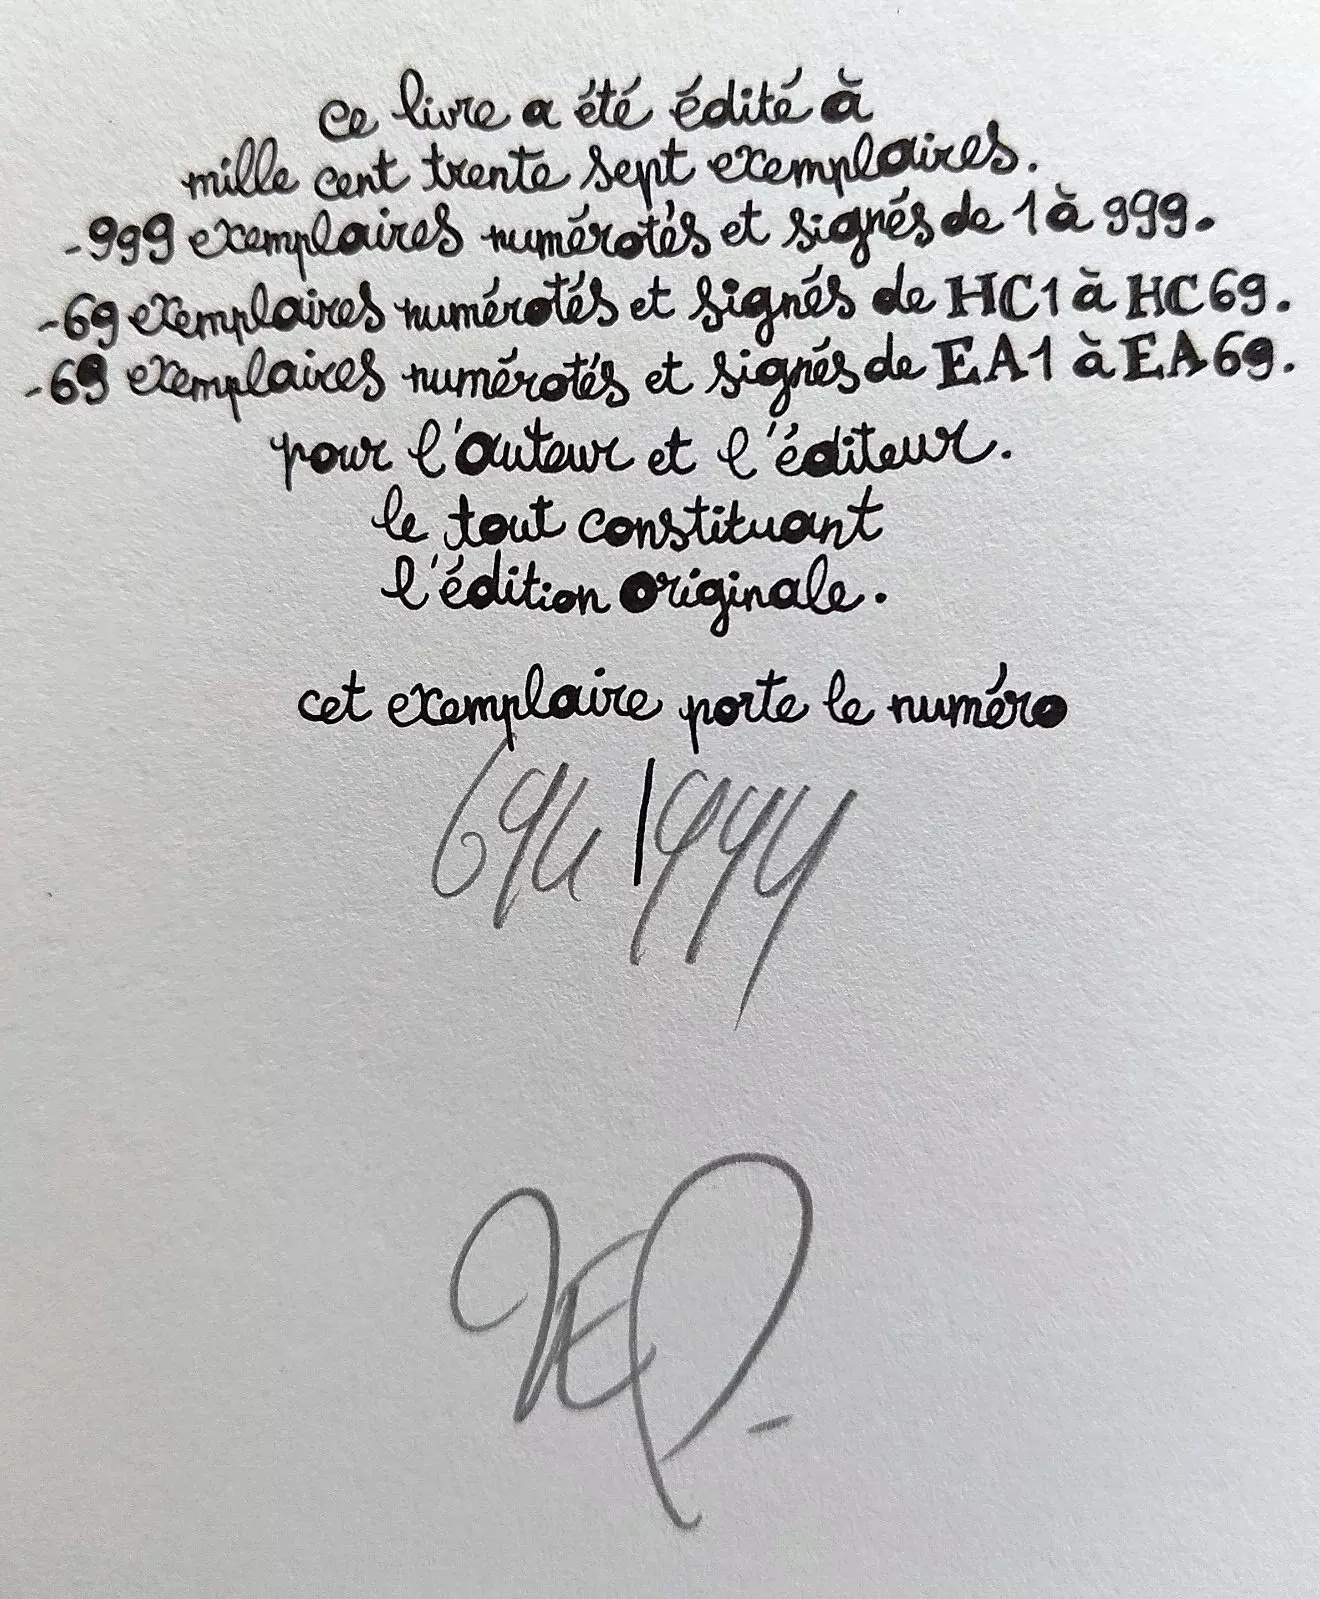 ce livre a été édité à
mille cent trente sept exemplaires.
-999 exemplaires numérotés et signés de 1 à 999.
-69 exemplaires numérotés et signés de HC1 à HC69.
-69 exemplaires numérotés et signés de EA1 à EA69.
pour l'auteur et l'éditeur.
le tout constituant
l'édition originale.
cet exemplaire porte le numéro
694/999